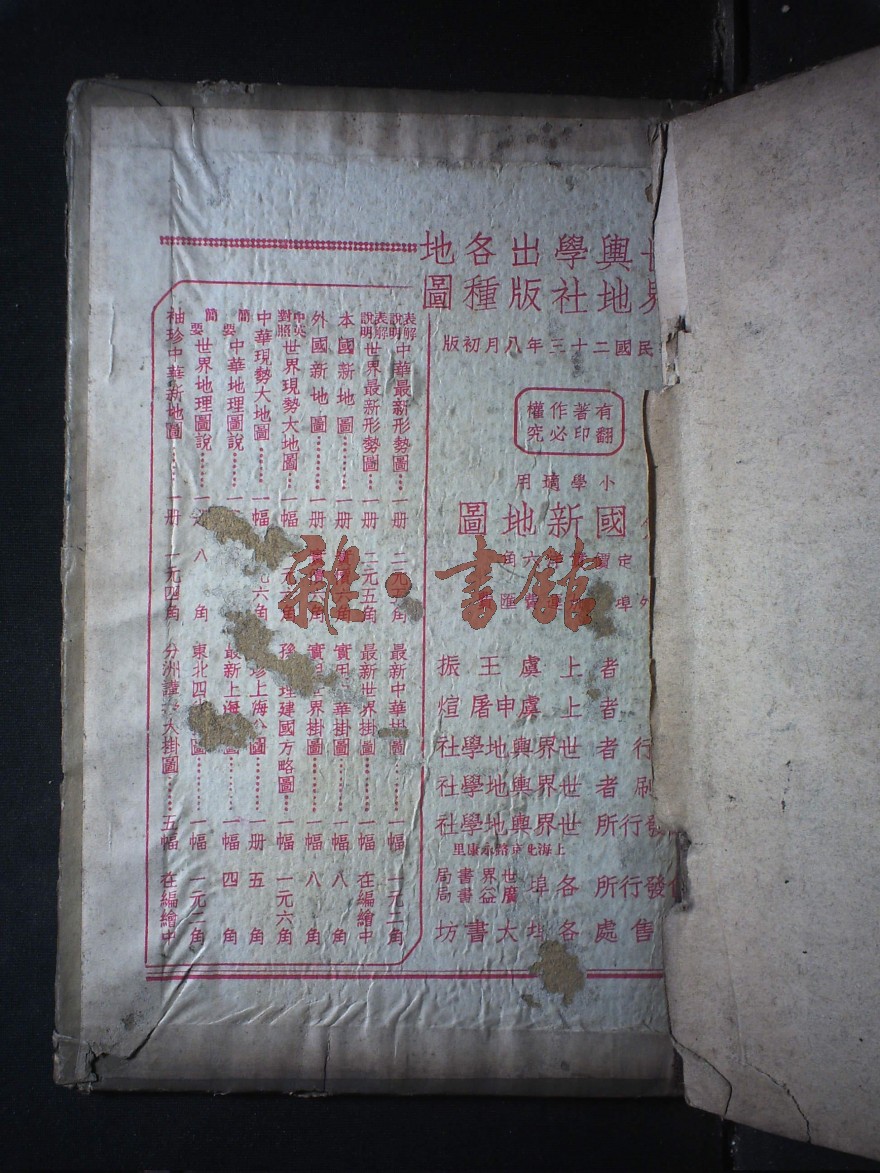 世界輿地學社出版各種地圖
民國二十三年八月初版
有著作權
翻印必究
小學適用
國新地圖
定價 六角
外埠 匯
者 上虞王振
者 上虞申屠煊
行者 世界輿地學社
刷者 世界輿地學社
發行所 世界輿地學社
上海北京路永康里
發行所 各埠 世界書局 廣益書局
售處 各埠大書坊
表解說明 中華最新形勢圖……一册 二元五角
表解說明 世界最新形勢圖……一册 二元五角
本國新地圖……一册 六角
外國新地圖……一册 角
中英對照 世界現勢大地圖……一幅 元 角
中華現勢大地圖……一幅 六角
簡要 中華地理圖說……一
簡要 世界地理圖說……一 八角
袖珍中華新地圖……一册 一元四角
最新中華掛圖……一幅 一元二角
最新世界掛圖……一幅 在編繪中
實用中華掛圖……一幅 八角
實用世界掛圖……一幅 八角
孫 理建國方略圖……一幅 一元六角
珍上海 圖……一册 五角
最新上海 圖……一幅 四角
東北四 圖……一幅 一元二角
分洲 大掛圖……五幅 在編繪中
雜·書館